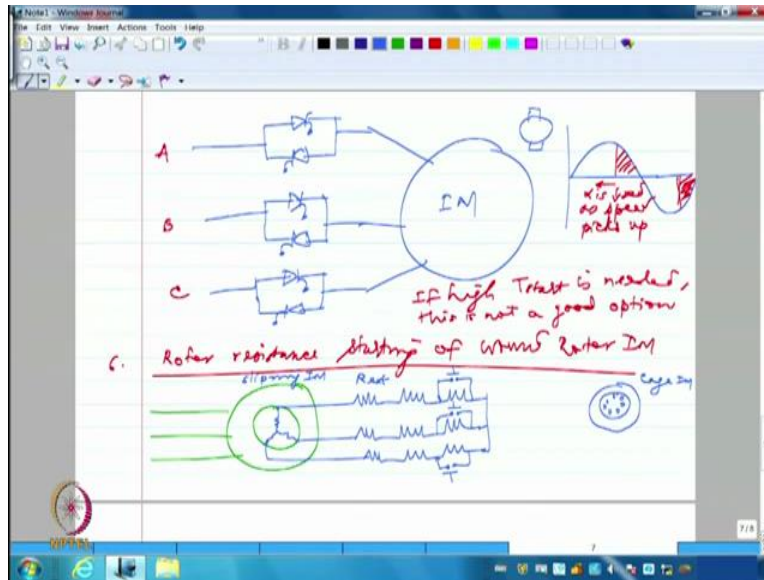 Note1 - Windows Journal
File Edit View Insert Actions Tools Help
B I
A
B
C
IM
α is ↓sed
as speed
picks up
If high Tstart is needed,
this is not a good option
6. Rotor resistance starting of wound Rotor IM
Slipring IM
Rext
Cage IM
NPTEL
7
7/8